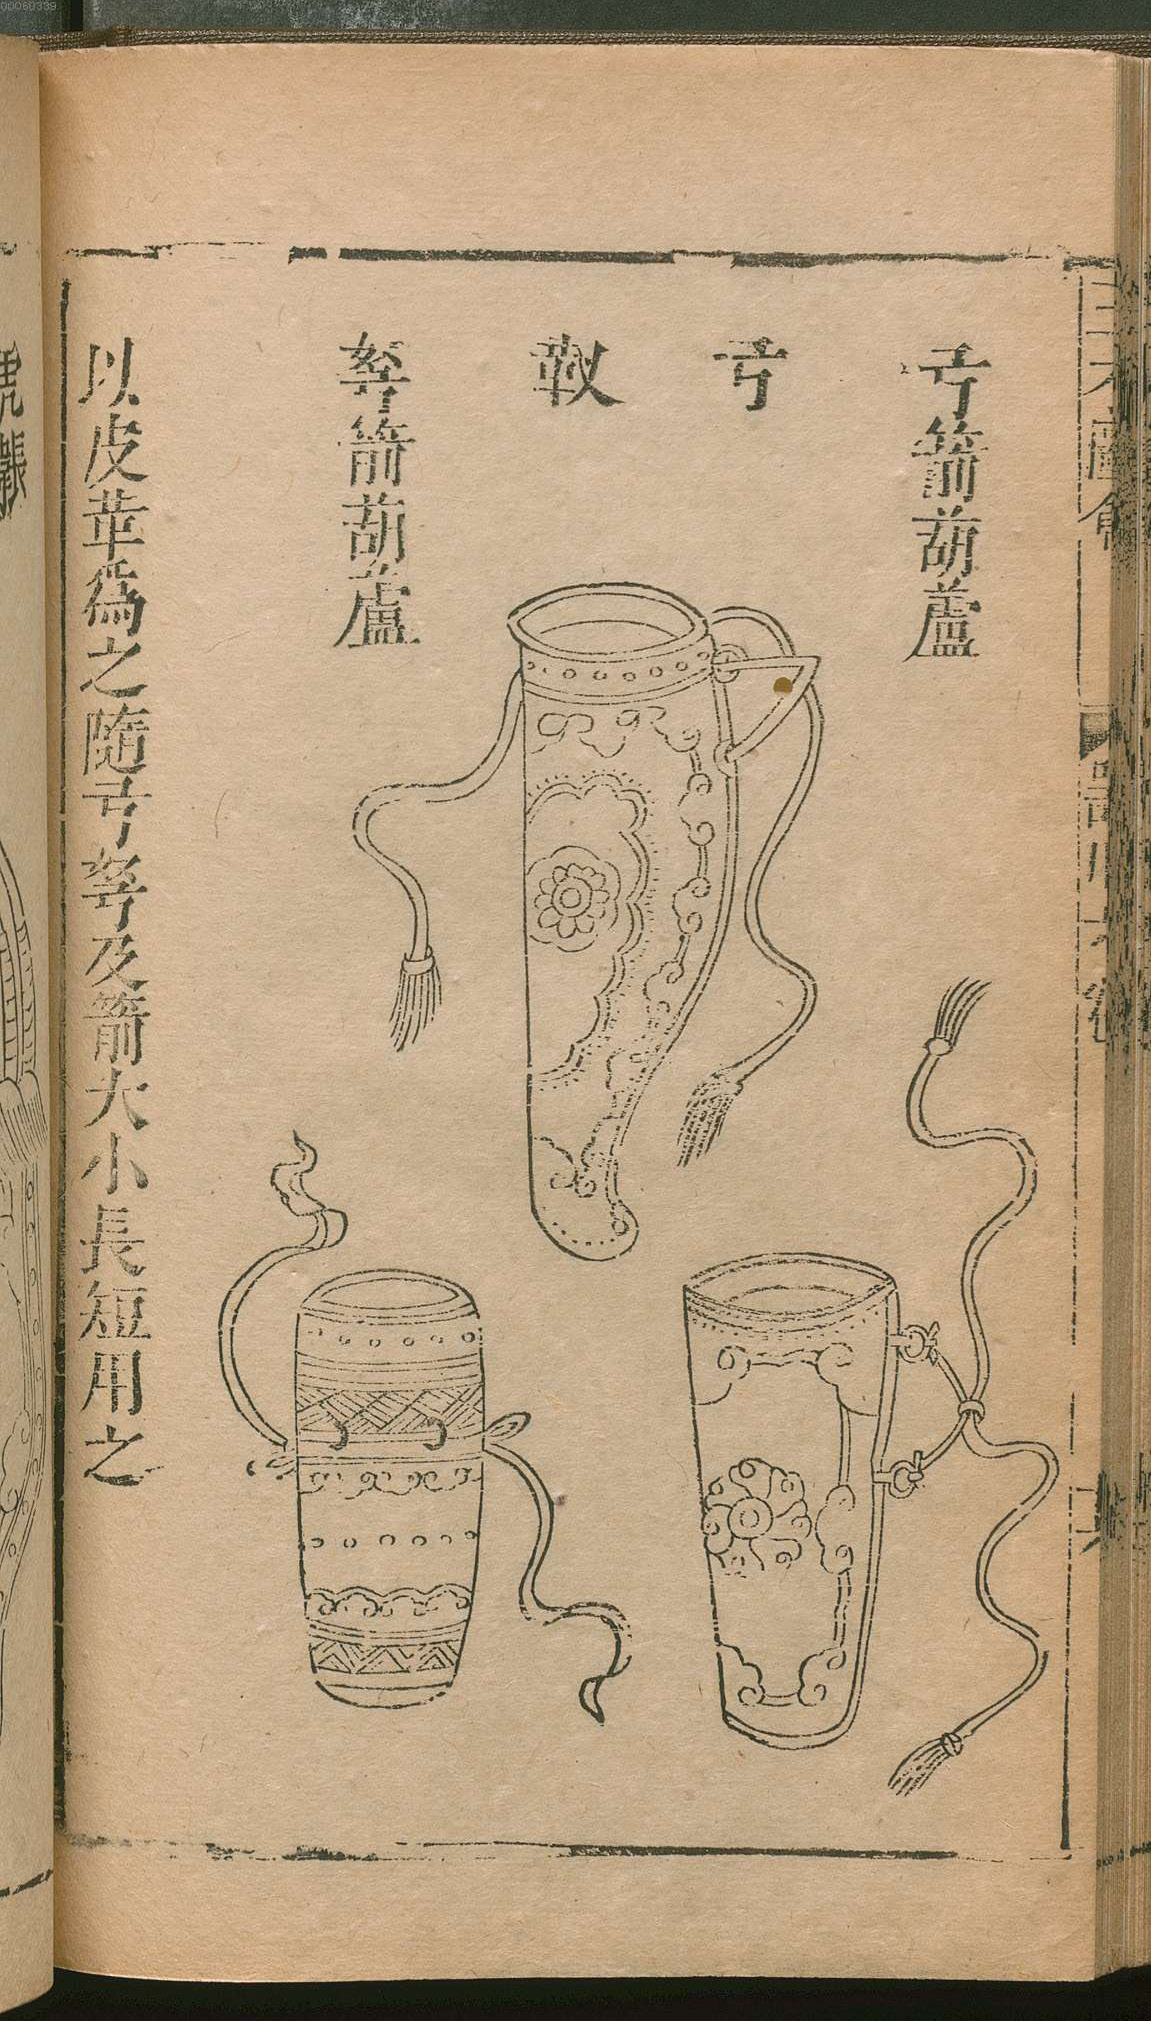 弓箭葫蘆
弓
靫
弩箭葫蘆
以皮革為之隨弓弩及箭大小長短用之
00060339